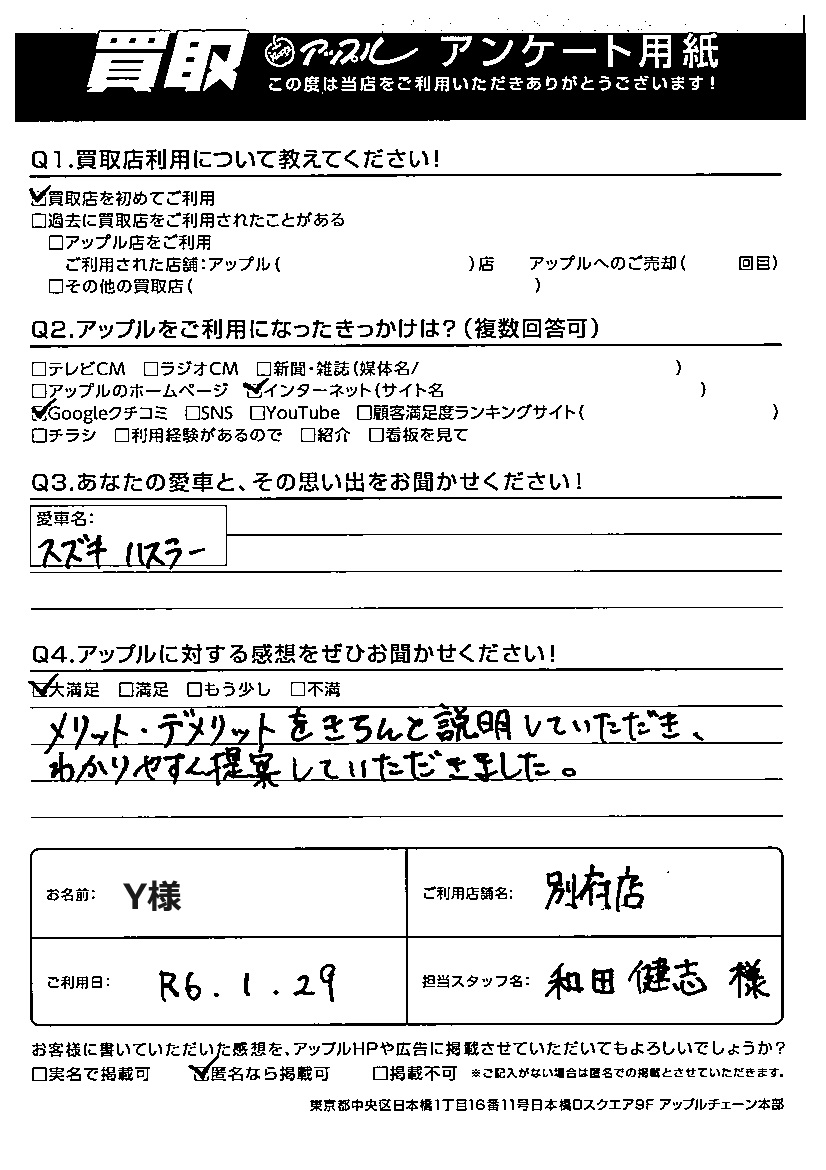 買取 アップル アンケート用紙
この度は当店をご利用いただきありがとうございます!
Q1.買取店利用について教えてください!
☑買取店を初めてご利用
□過去に買取店をご利用されたことがある
□アップル店をご利用
ご利用された店舗:アップル( )店 アップルへのご売却( 回目)
□その他の買取店( )
Q2.アップルをご利用になったきっかけは?(複数回答可)
□テレビCM □ラジオCM □新聞・雑誌(媒体名/ )
□アップルのホームページ ☑インターネット(サイト名 )
☑Googleクチコミ □SNS □YouTube □顧客満足度ランキングサイト( )
□チラシ □利用経験があるので □紹介 □看板を見て
Q3.あなたの愛車と、その思い出をお聞かせください!
愛車名:
スズキ ハスラー
Q4.アップルに対する感想をぜひお聞かせください!
☑大満足 □満足 □もう少し □不満
メリット・デメリットをきちんと説明していただき、
わかりやすく提案していただきました。
お名前: Y様 ご利用店舗名: 別府店
ご利用日: R6.1.29 担当スタッフ名: 和田 健志 様
お客様に書いていただいた感想を、アップルHPや広告に掲載させていただいてもよろしいでしょうか?
□実名で掲載可 ☑匿名なら掲載可 □掲載不可 ※ご記入がない場合は匿名での掲載とさせていただきます。
東京都中央区日本橋1丁目16番11号日本橋Dスクエア9F アップルチェーン本部